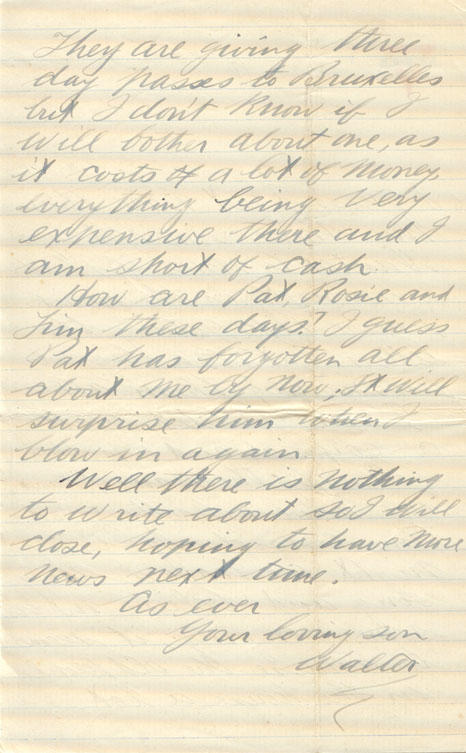 They are giving three
day passes to Bruxelles
but I don't know if I
will bother about one, as
it costs of a lot of money,
everything being very
expensive there and I
am short of cash
How are Pat, Rosie and
Jim these days? I guess
Pat has forgotten all
about me by now, It will
surprise him when I
blow in again
Well there is nothing
to write about so I will
close, hoping to have more
news next time.
As ever
Your loving son
Walter